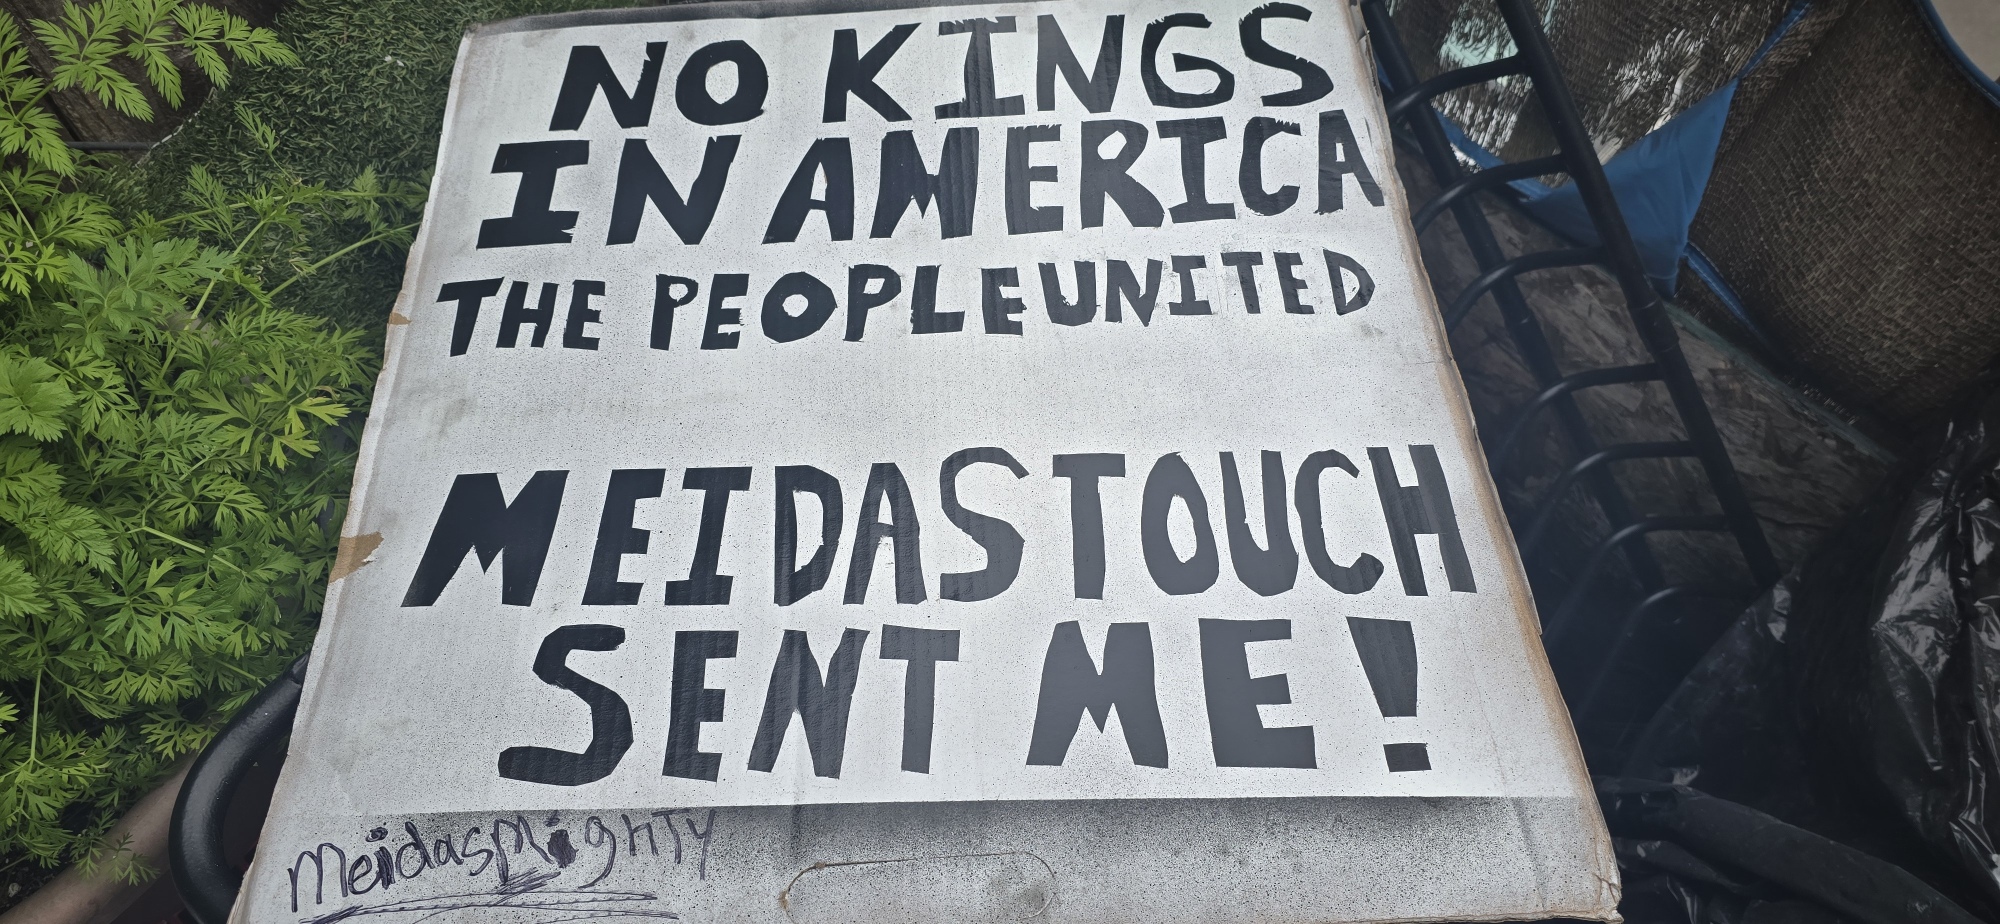 NO KINGS
IN AMERICA
THE PEOPLE UNITED
MEIDASTOUCH
SENT ME!
MeidasMighty